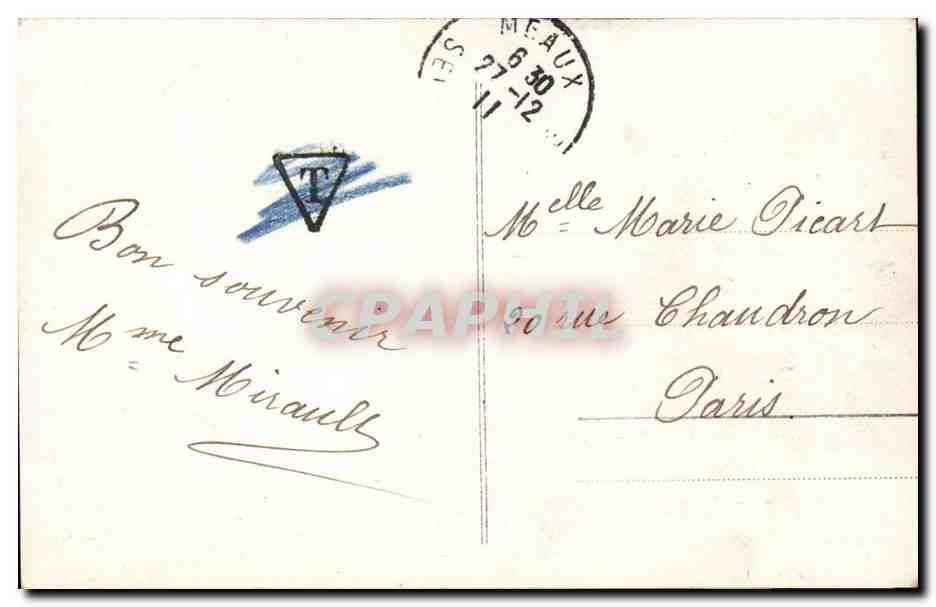 MEAUX
6 30
27-12
11
SEI
T
Bon souvenir
Mme Mirault
Melle Marie Picart
20 rue Chaudron
Paris.
CPAPHIL